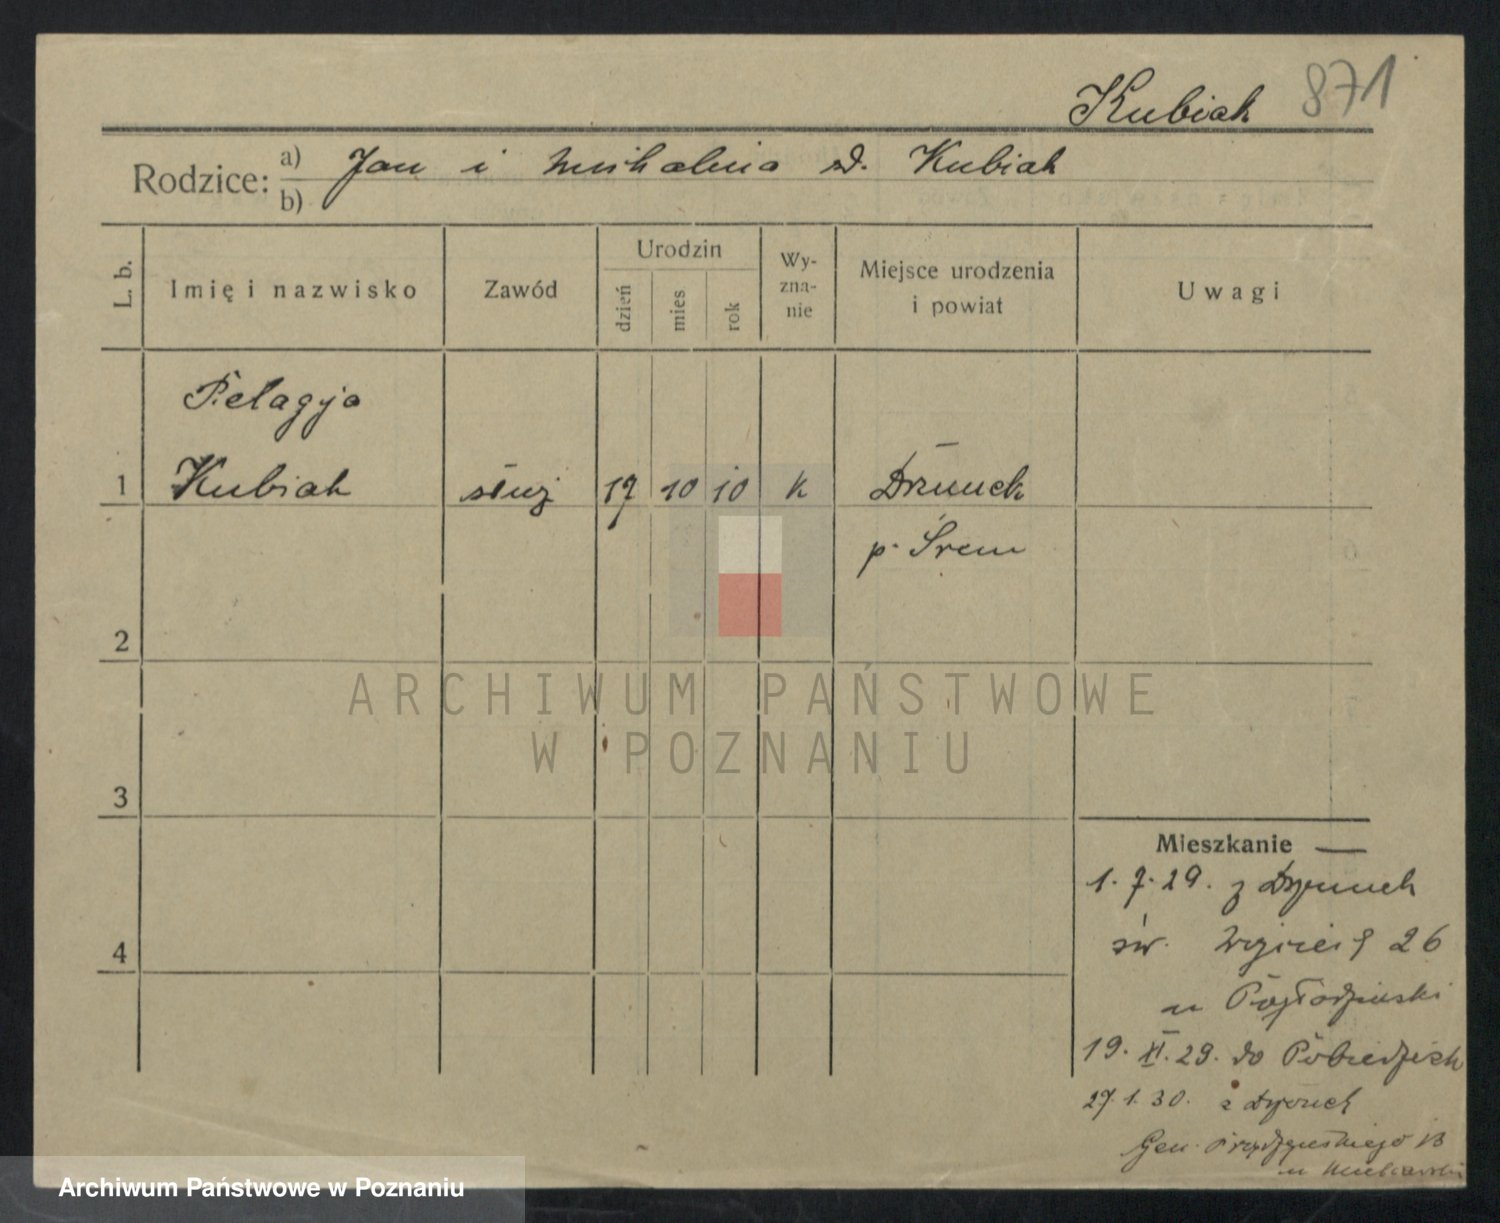 Kubiak 871
Rodzice: a) Jan i Michalina d. Kubiak
b)
L. b. Imię i nazwisko Zawód Urodzin dzień mies rok Wyznanie Miejsce urodzenia i powiat Uwagi
Pelagja
1 Kubiak służ 17 10 10 k Drzonek
p. Śrem
2
ARCHIWUM PAŃSTWOWE
W POZNANIU
3
Mieszkanie —
1. 7. 29. z
św. Wojciech 26
u
4
19. XI. 29. do Pobiedzisk
27. 1. 30. z
Gen. Prądzyńskiego
u
Archiwum Państwowe w Poznaniu